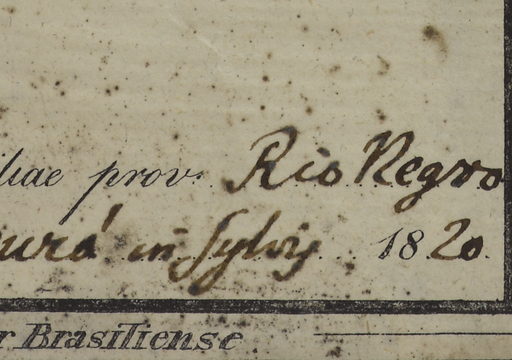 liae prov. Rio Negro
urá in Sylvis 1820.
r Brasiliense